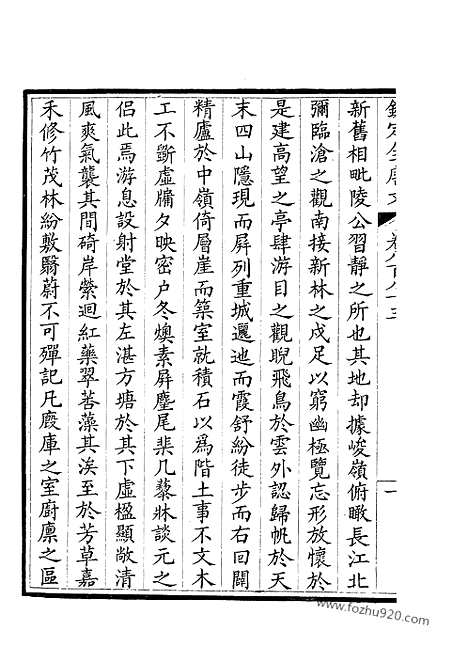 欽定全唐文
卷八百八十三
一
新舊相毗陵公習靜之所也其地却據峻嶺俯瞰長江北
彌臨滄之觀南接新林之戍足以窮幽極覽忘形放懷於
是建高望之亭肆游目之觀睨飛鳥於雲外認歸帆於天
末四山隱現而屛列重城邐迤而霞舒紛徒步而右回闢
精廬於中嶺倚層崖而築室就積石以爲階土事不文木
工不斵虛牖夕映密户冬燠素屛麈尾棐几藜牀談元之
侣此焉游息設射堂於其左湛方塘於其下虛楹顯敞清
風爽氣襲其間碕岸縈迴紅藥翠荅藻其涘至於芳草嘉
禾修竹茂林紛敷翳蔚不可殫記凡廄庫之室廚廪之區
www.fozhu920.com